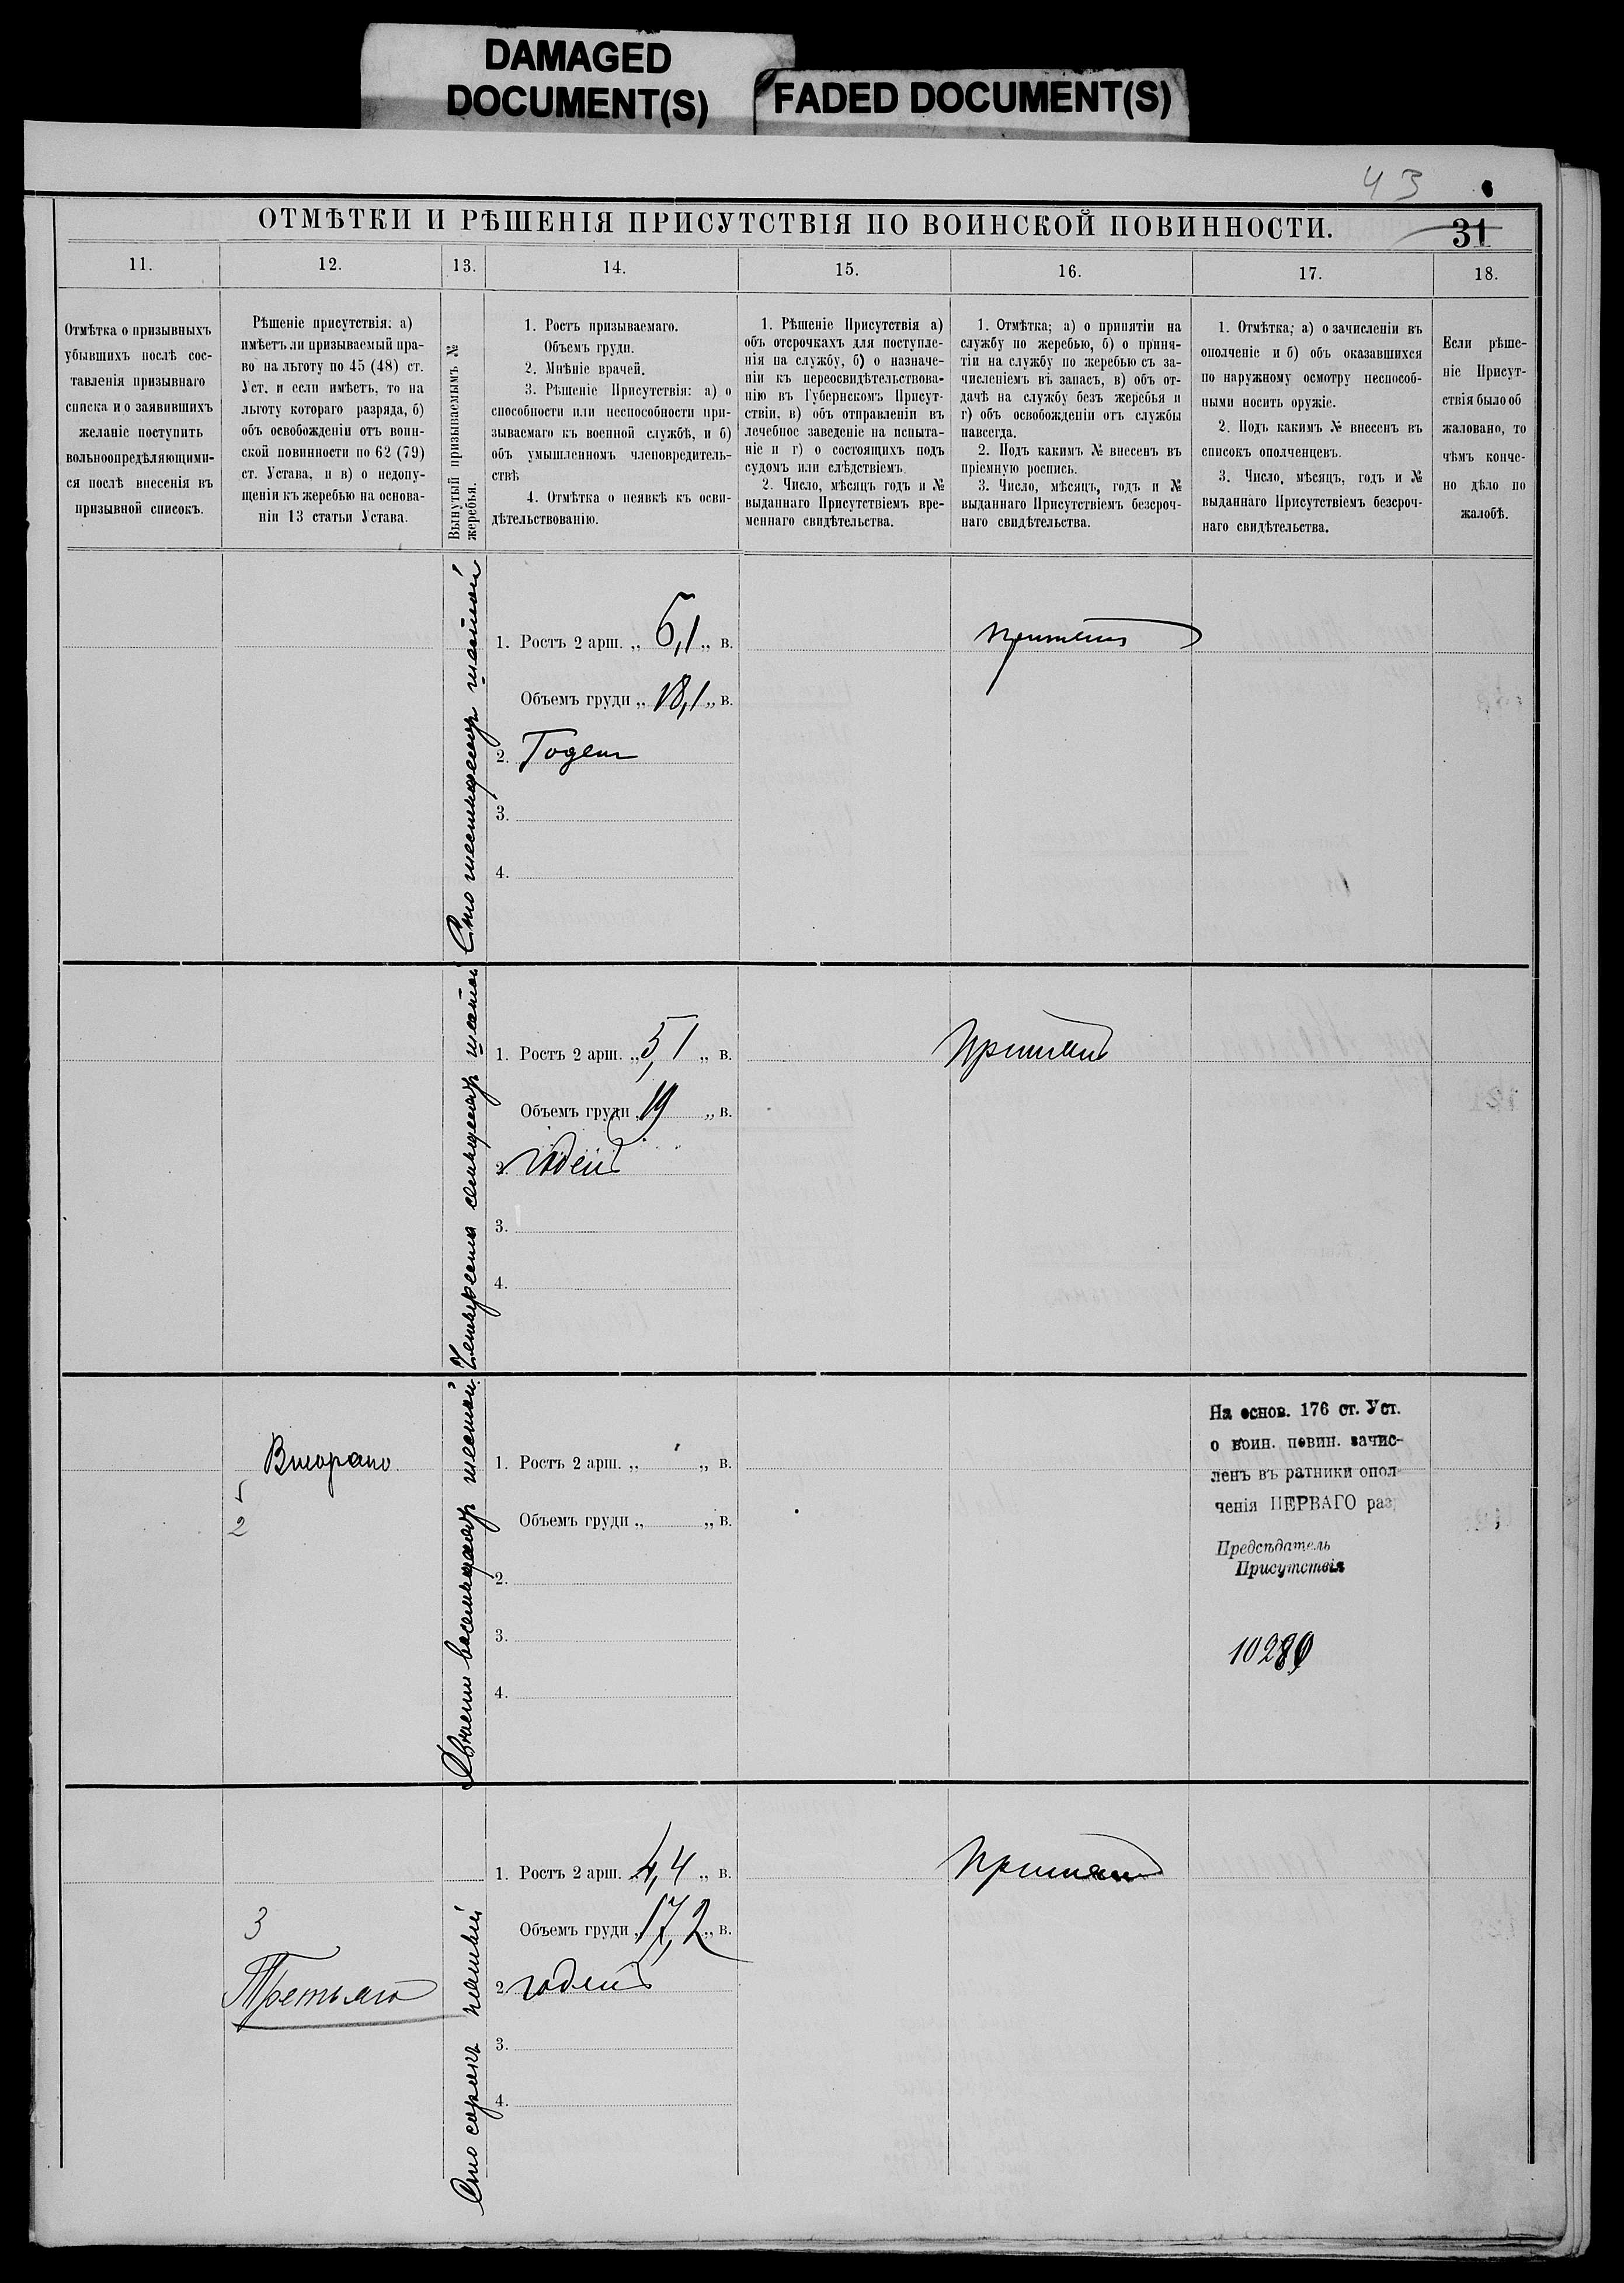 DAMAGED
DOCUMENT(S)
FADED DOCUMENT(S)
43
ОТМѢТКИ И РѢШЕНІЯ ПРИСУТСТВІЯ ПО ВОИНСКОЙ ПОВИННОСТИ.
31
11.
12.
13.
14.
15.
16.
17.
18.
Отмѣтка о призывныхъ
убывшихъ послѣ сос-
тавленія призывнаго
списка и о заявившихъ
желаніе поступить
вольноопредѣляющими-
ся послѣ внесенія въ
призывной списокъ.
Рѣшеніе присутствія: а)
имѣетъ ли призываемый пра-
во на льготу по 45 (48) ст.
Уст. и если имѣетъ, то на
льготу котораго разряда, б)
объ освобожденіи отъ воин-
ской повинности по 62 (79)
ст. Устава, и в) о недопу-
щеніи къ жеребью на основа-
ніи 13 статьи Устава.
Вынутый призываемымъ №
жеребья.
1. Ростъ призываемаго.
Объемъ груди.
2. Мнѣніе врачей.
3. Рѣшеніе Присутствія: а) о
способности или неспособности при-
зываемаго къ военной службѣ, и б)
объ умышленномъ членовредитель-
ствѣ
4. Отмѣтка о неявкѣ къ осви-
дѣтельствованію.
1. Рѣшеніе Присутствія а)
объ отсрочкахъ для поступле-
нія на службу, б) о назначе-
ніи къ переосвидѣтельствова-
нію въ Губернскомъ Присут-
ствіи. в) объ отправленіи въ
лечебное заведеніе на испыта-
ніе и г) о состоящихъ подъ
судомъ или слѣдствіемъ.
2. Число, мѣсяцъ годъ и №
выданнаго Присутствіемъ вре-
меннаго свидѣтельства.
1. Отмѣтка; а) о принятіи на
службу по жеребью, б) о приня-
тіи на службу по жеребью съ за-
численіемъ въ запасъ, в) объ от-
дачѣ на службу безъ жеребья и
г) объ освобожденіи отъ службы
навсегда.
2. Подъ какимъ № внесенъ въ
пріемную роспись.
3. Число, мѣсяцъ, годъ и №
выданнаго Присутствіемъ безсроч-
наго свидѣтельства.
1. Отмѣтка; а) о зачисленіи въ
ополченіе и б) объ оказавшихся
по наружному осмотру неспособ-
ными носить оружіе.
2. Подъ какимъ № внесенъ въ
списокъ ополченцевъ.
3. Число, мѣсяцъ, годъ и №
выданнаго Присутствіемъ безсроч-
наго свидѣтельства.
Если рѣше-
ніе Присут-
ствія было об
жаловано, то
чѣмъ конче-
но дѣло по
жалобѣ.
Сто шестьдесятъ шестой
1. Ростъ 2 арш. „ 6,1 „ в.
Объемъ груди „ 18,1 „ в.
2. Годенъ
3.
4.
принятъ
Четыреста семьдесятъ шестой
1. Ростъ 2 арш. „ 5,1 „ в.
Объемъ груди „ 19 „ в.
2. годенъ
3.
4.
принятъ
Втораго
2
Двѣсти восемьдесятъ шестой.
1. Ростъ 2 арш. „ „ в.
Объемъ груди „ „ в.
2.
3.
4.
На основ. 176 ст. Уст.
о воин. повин. зачис-
ленъ въ ратники опол-
ченія ПЕРВАГО раз
Предсѣдатель
Присутствія
3
Третьяго
Сто сорокъ
1. Ростъ 2 арш. 4,4 „ в.
Объемъ груди „ 17,2 „ в.
2 годенъ
3.
4.
принятъ